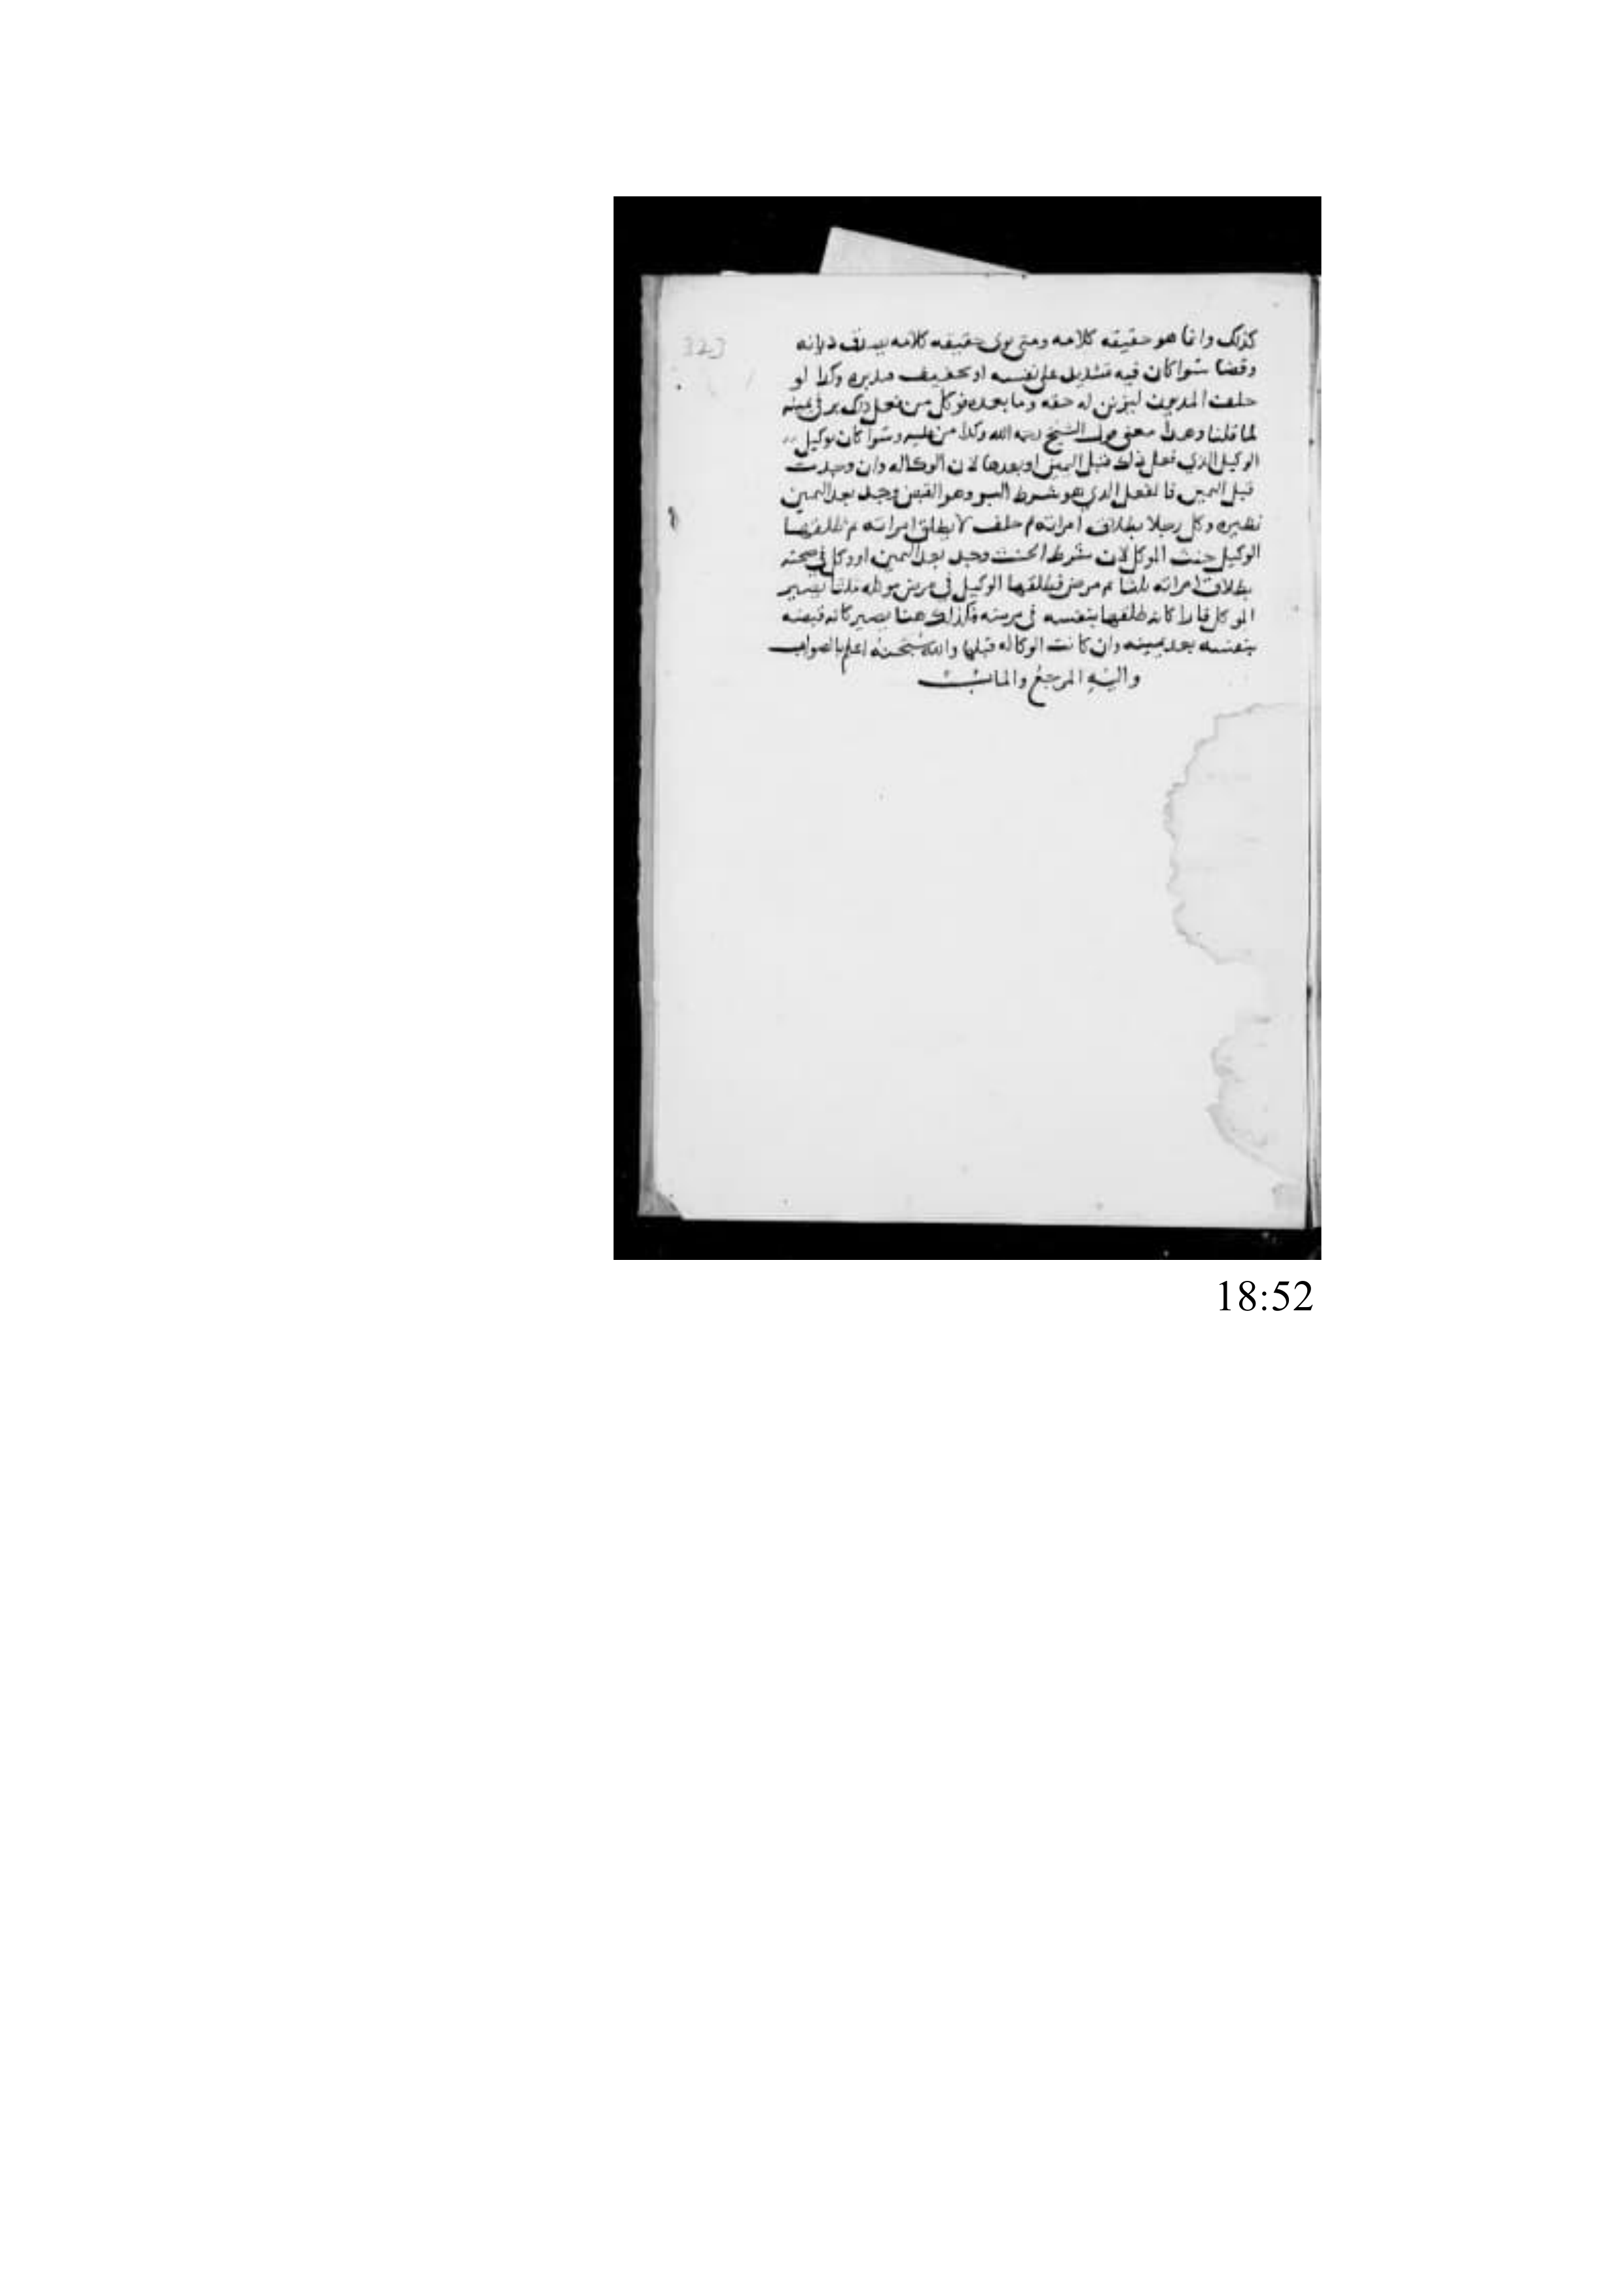 323
كذلك وانما هو حقيقه كلامه ومتى نوى حقيقه كلامه يصدق ديانه
وقضا سوا كان فيه تشديد على نفسه او تخفيف وكذا لو
حلف المديون ليزنن له حقه وما بعده فوكل من فعل ذلك بر في يمينه
لما قلنا وهذا معنى قول الشيخ رحمه الله وكذا من عليه وسوا كان توكيل
الوكيل الذي فعل ذلك قبل اليمين او بعدها لان الوكاله وان وجدت
قبل اليمين فالفعل الذي هو شرط البر وهو القبض وجد بعد اليمين
نظيره وكل رجلا بطلاق امراته ثم حلف لا يطلق امراته ثم طلقها
الوكيل حنث الموكل لان شرط الحنث وجد بعد اليمين او وكل في صحته
بطلاق امراته ثلثا ثم مرض فطلقها الوكيل في مرض موكله ثلثا يصير
الموكل فارا كانه طلقها بنفسه في مرضه فكذلك هنا يصير كانه قبضه
بنفسه بعد يمينه وان كانت الوكاله قبلها والله سبحنه اعلم بالصواب
واليه المرجع والماب
18:52